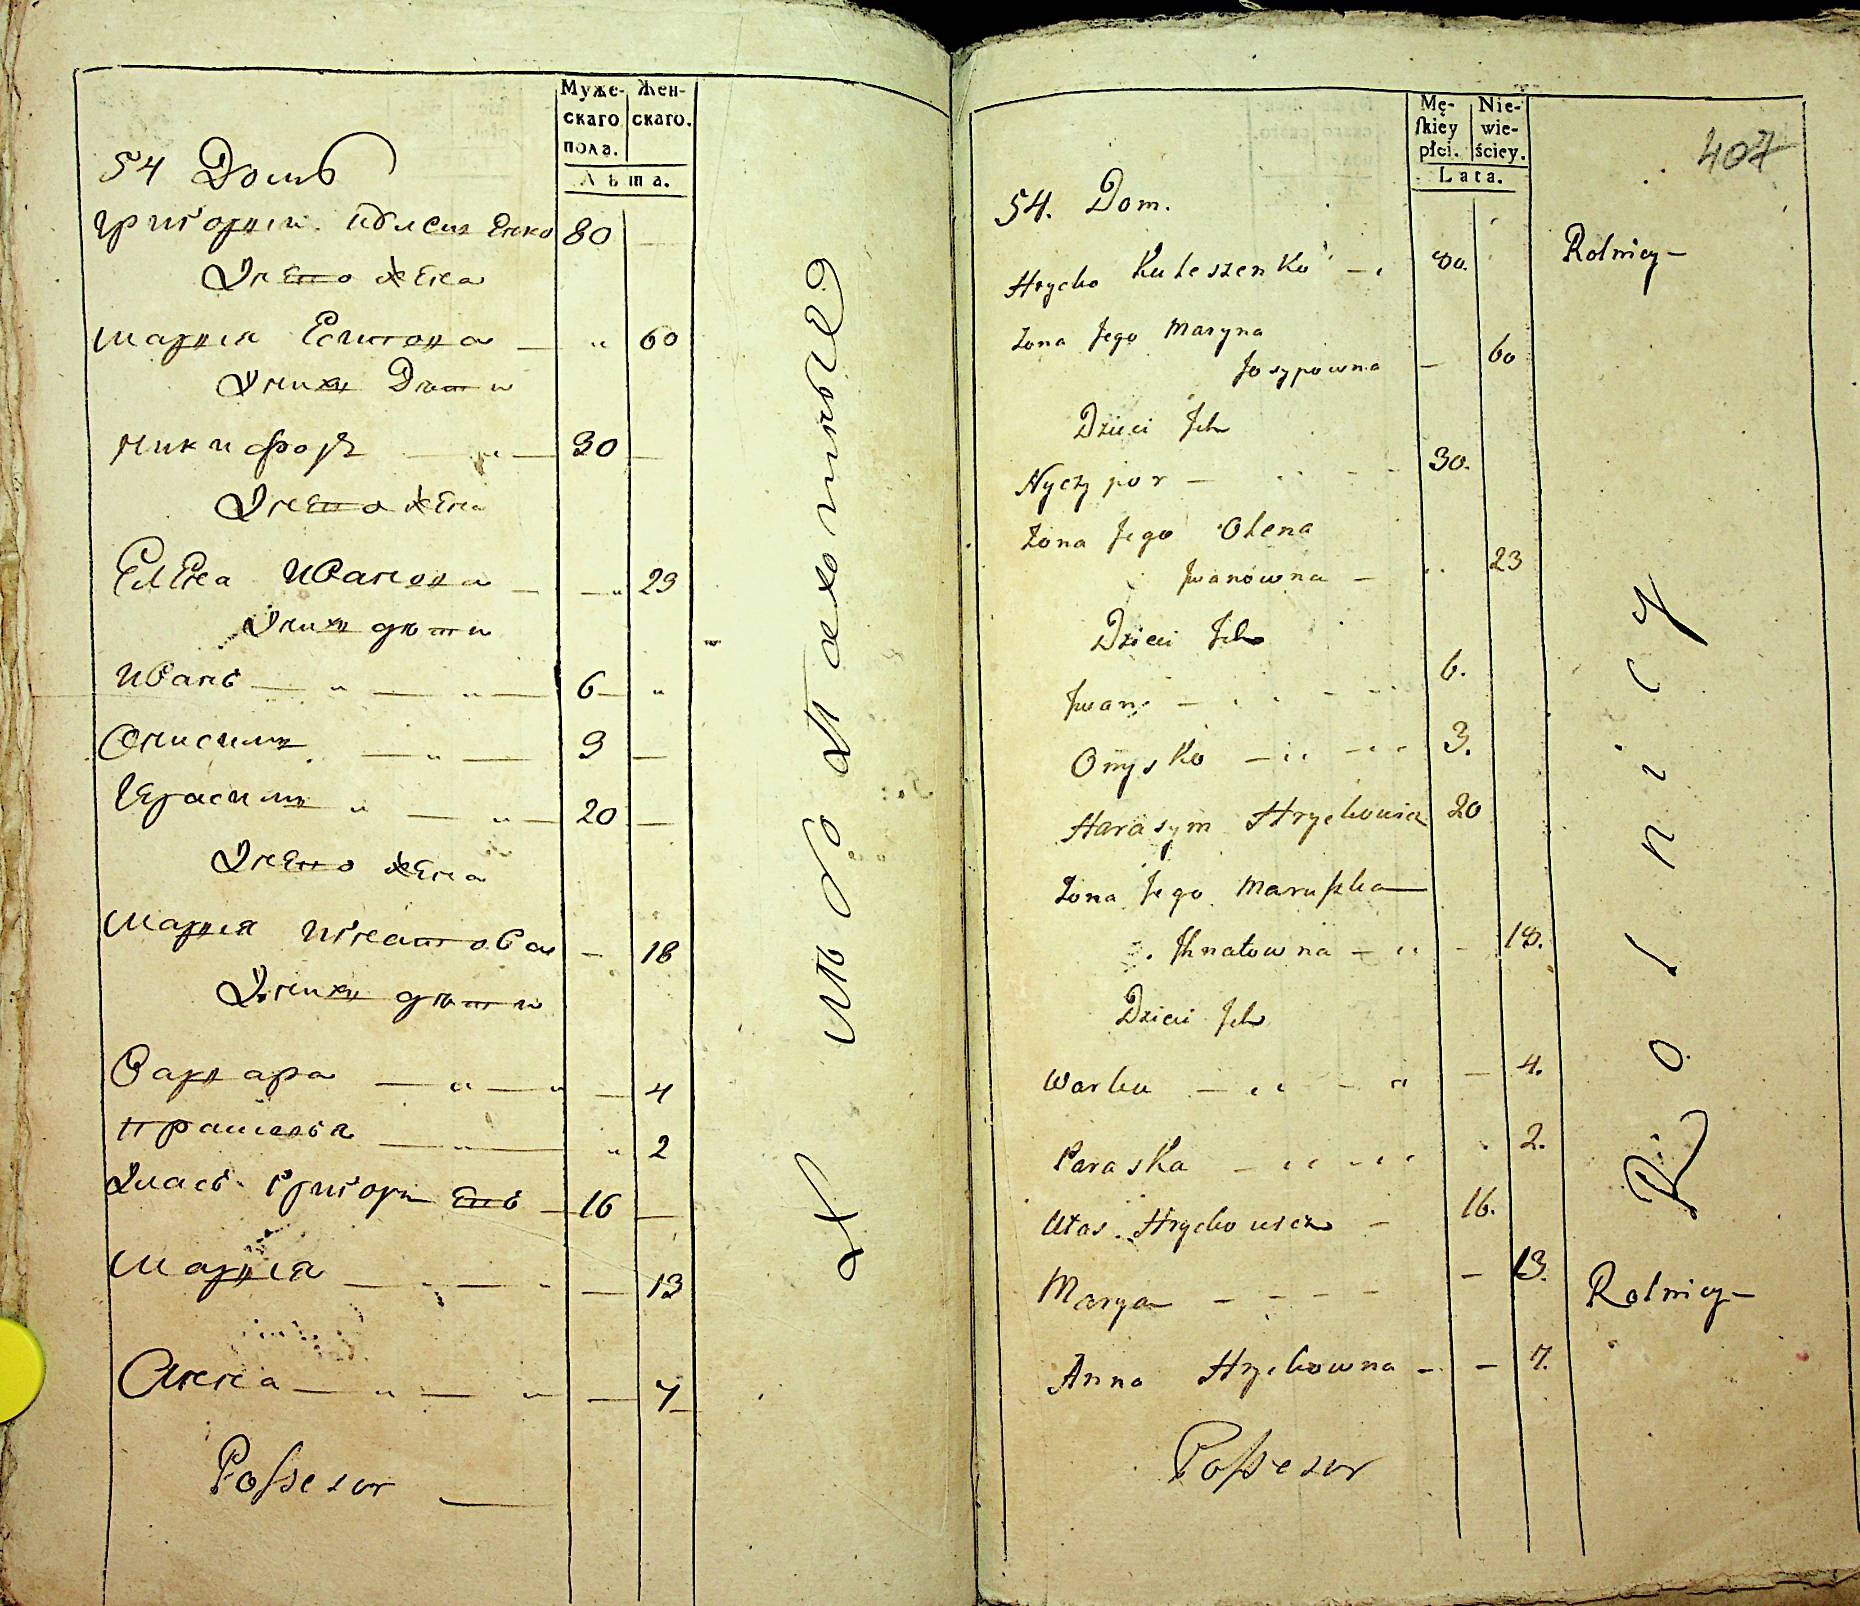 Муже-
скаго
пола.
Жен-
скаго.
Лѣта.
54 Домъ
Григорий
80
У него жена
Мария
60
У них Дѣти
Никифоръ
30
У него жена
Елена Иванова
23
У них дѣти
Иванъ
6
Онисимъ
3
Герасимъ
20
У него жена
Мария Игнатова
18
У них дѣти
Варвара
4
2
Власъ Григориевъ
16
Мария
13
Анна
7
Possesor
Хлѣбопахотные
Mę-
skiey
płci.
Nie-
wie-
ściey.
Lata.
407
54. Dom.
Hrycko Kuleszenko
80.
Rolnicy
Zona Jego Maryna
Josypowna
60
Dzieci Ich
Nyczypor
30.
Zona Jego Olena
Iwanowna
23
Dzieci Ich
Iwan
6.
Onysko
3.
Harasym Hryckowicz
20
Zona Jego Maruszka
Ihnatowna
18.
Dzieci Ich
Warka
4.
Paraska
2.
Ułas Hryckowicz
16.
Marya
13.
Rolnicy
Anna Hryckowna
7.
Possesor
Rolnicy